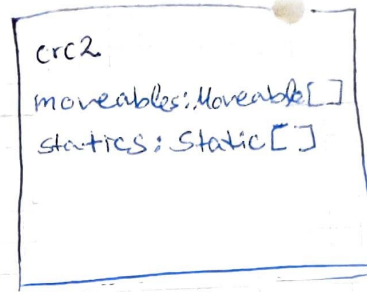 crc2
moveables: Moveable[]
statics: Static[]